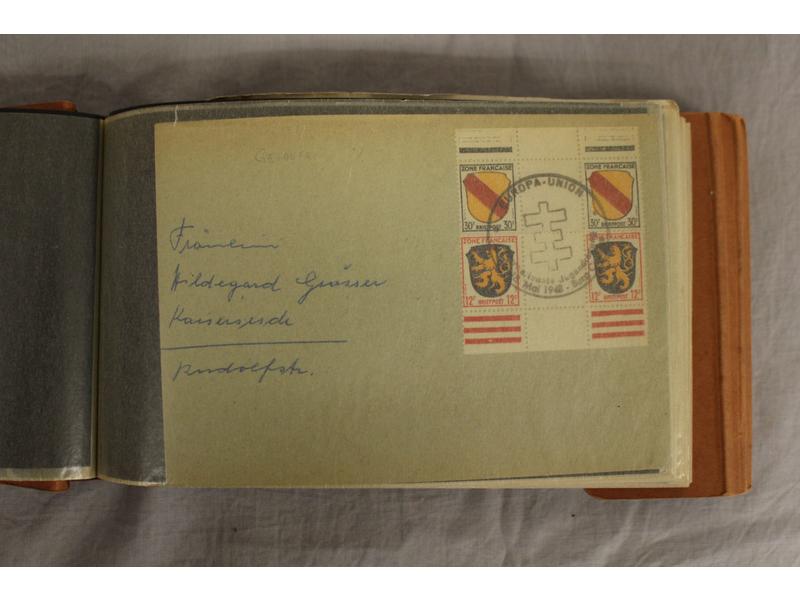 Fräulein
Hildegard Grösser
Kaisersesch
Rudolfstr.
ZONE FRANÇAISE
30 BRIEFPOST 30
ZONE FRANÇAISE
30 BRIEFPOST 30
ZONE FRANÇAISE
12 BRIEFPOST 12
ZONE FRANÇAISE
12 BRIEFPOST 12
EUROPA-UNION
Mai 1948